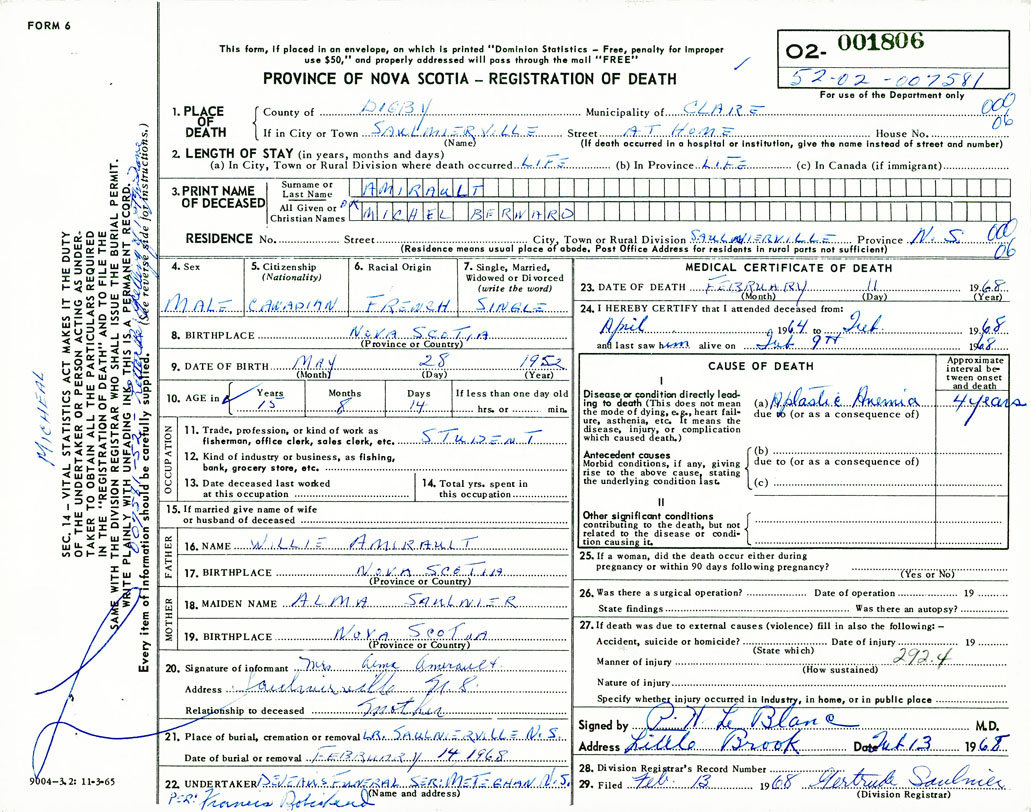 FORM 6
This form, if placed in an envelope, on which is printed "Dominion Statistics – Free, penalty for improper
use $50," and properly addressed will pass through the mail "FREE"
PROVINCE OF NOVA SCOTIA – REGISTRATION OF DEATH
02- 001806
52-02-007581
For use of the Department only
1. PLACE OF DEATH County of DIGBY Municipality of CLAIRE 000 06
If in City or Town SAULNIERVILLE Street AT HOME House No.
(Name) (If death occurred in a hospital or institution, give the name instead of street and number)
2. LENGTH OF STAY (in years, months and days)
(a) In City, Town or Rural Division where death occurred LIFE (b) In Province LIFE (c) In Canada (if immigrant)
3. PRINT NAME OF DECEASED Surname or Last Name AMIRAULT
All Given or Christian Names MICHEL BERNARD
RESIDENCE No. Street City, Town or Rural Division SAULNIERVILLE Province N.S. 000 06
(Residence means usual place of abode. Post Office Address for residents in rural parts not sufficient)
4. Sex MALE
5. Citizenship (Nationality) CANADIAN
6. Racial Origin FRENCH
7. Single, Married, Widowed or Divorced (write the word) SINGLE
8. BIRTHPLACE NOVA SCOTIA
(Province or Country)
9. DATE OF BIRTH MAY 28 1952
(Month) (Day) (Year)
10. AGE in Years 15 Months 8 Days 14 If less than one day old hrs. or min.
OCCUPATION
11. Trade, profession, or kind of work as fisherman, office clerk, sales clerk, etc. STUDENT
12. Kind of industry or business, as fishing, bank, grocery store, etc.
13. Date deceased last worked at this occupation
14. Total yrs. spent in this occupation
15. If married give name of wife or husband of deceased
FATHER
16. NAME WILLIE AMIRAULT
17. BIRTHPLACE NOVA SCOTIA
(Province or Country)
MOTHER
18. MAIDEN NAME ALMA SAULNIER
19. BIRTHPLACE NOVA SCOTIA
(Province or Country)
20. Signature of informant Mrs Alma Amirault
Address Saulnierville N.S.
Relationship to deceased Mother
21. Place of burial, cremation or removal LR. SAULNIERVILLE N.S.
Date of burial or removal FEBRUARY 14 1968
22. UNDERTAKER FUNERAL SER: METEGHAN N.S.
(Name and address)
PER: Francis
MEDICAL CERTIFICATE OF DEATH
23. DATE OF DEATH FEBRUARY 11 1968
(Month) (Day) (Year)
24. I HEREBY CERTIFY that I attended deceased from:
April 1964 to Feb. 1968
and last saw him alive on Feb 9th 1968
CAUSE OF DEATH
Approximate interval between onset and death
I
Disease or condition directly leading to death (This does not mean the mode of dying, e.g., heart failure, asthenia, etc. It means the disease, injury, or complication which caused death.)
(a) Aplastic Anemia 4 years
due to (or as a consequence of)
Antecedent causes
Morbid conditions, if any, giving rise to the above cause, stating the underlying condition last.
(b)
due to (or as a consequence of)
(c)
II
Other significant conditions contributing to the death, but not related to the disease or condition causing it.
25. If a woman, did the death occur either during pregnancy or within 90 days following pregnancy?
(Yes or No)
26. Was there a surgical operation? Date of operation 19
State findings Was there an autopsy?
27. If death was due to external causes (violence) fill in also the following: –
Accident, suicide or homicide? Date of injury 19
(State which)
Manner of injury 292.4
(How sustained)
Nature of injury
Specify whether injury occurred in Industry, in home, or in public place
Signed by P.H. Le Blanc M.D.
Address Little Brook Date Feb 13 1968
28. Division Registrar's Record Number
29. Filed Feb. 13 1968 Gertrude Saulnier
(Division Registrar)
SEC. 14 – VITAL STATISTICS ACT MAKES IT THE DUTY
OF THE UNDERTAKER OR PERSON ACTING AS UNDER-
TAKER TO OBTAIN ALL THE PARTICULARS REQUIRED
IN THE "REGISTRATION OF DEATH" AND TO FILE THE
SAME WITH THE DIVISION REGISTRAR WHO SHALL ISSUE THE BURIAL PERMIT.
WRITE PLAINLY WITH UNFADING INK, THIS IS A PERMANENT RECORD.
Every item of information should be carefully supplied. (See reverse side for instructions.)
MICHEAL
9004-3.2: 11-3-65